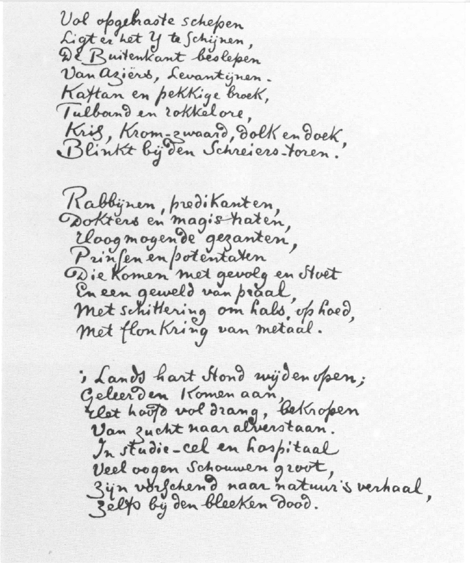 Vol opgebraste schepen
Ligt er het Y te schijnen,
De Buitenkant beslepen
Van Aziërs, Levantijnen.
Kaftan en pekkige broek,
Tulband en rokkelore,
Kris, Krom-zwaard, dolk en doek,
Blinkt bij den Schreiers-toren.
Rabbijnen, predikanten,
Dokters en magistraten,
Hoogmogende gezanten,
Prinsen en potentaten
Die komen met gevolg en stoet
En een geweld van praal,
Met schittering om hals, op hoed,
Met flonkring van metaal.
's Lands hart stond wijd en open;
Geleerden komen aan,
Het hoofd vol drang, bekropen
Van zucht naar alverstaan.
In studie-cel en hospitaal
Veel oogen schouwen groot,
Zijn vorschend naar natuur's verhaal,
Zelfs bij den bleeken dood.